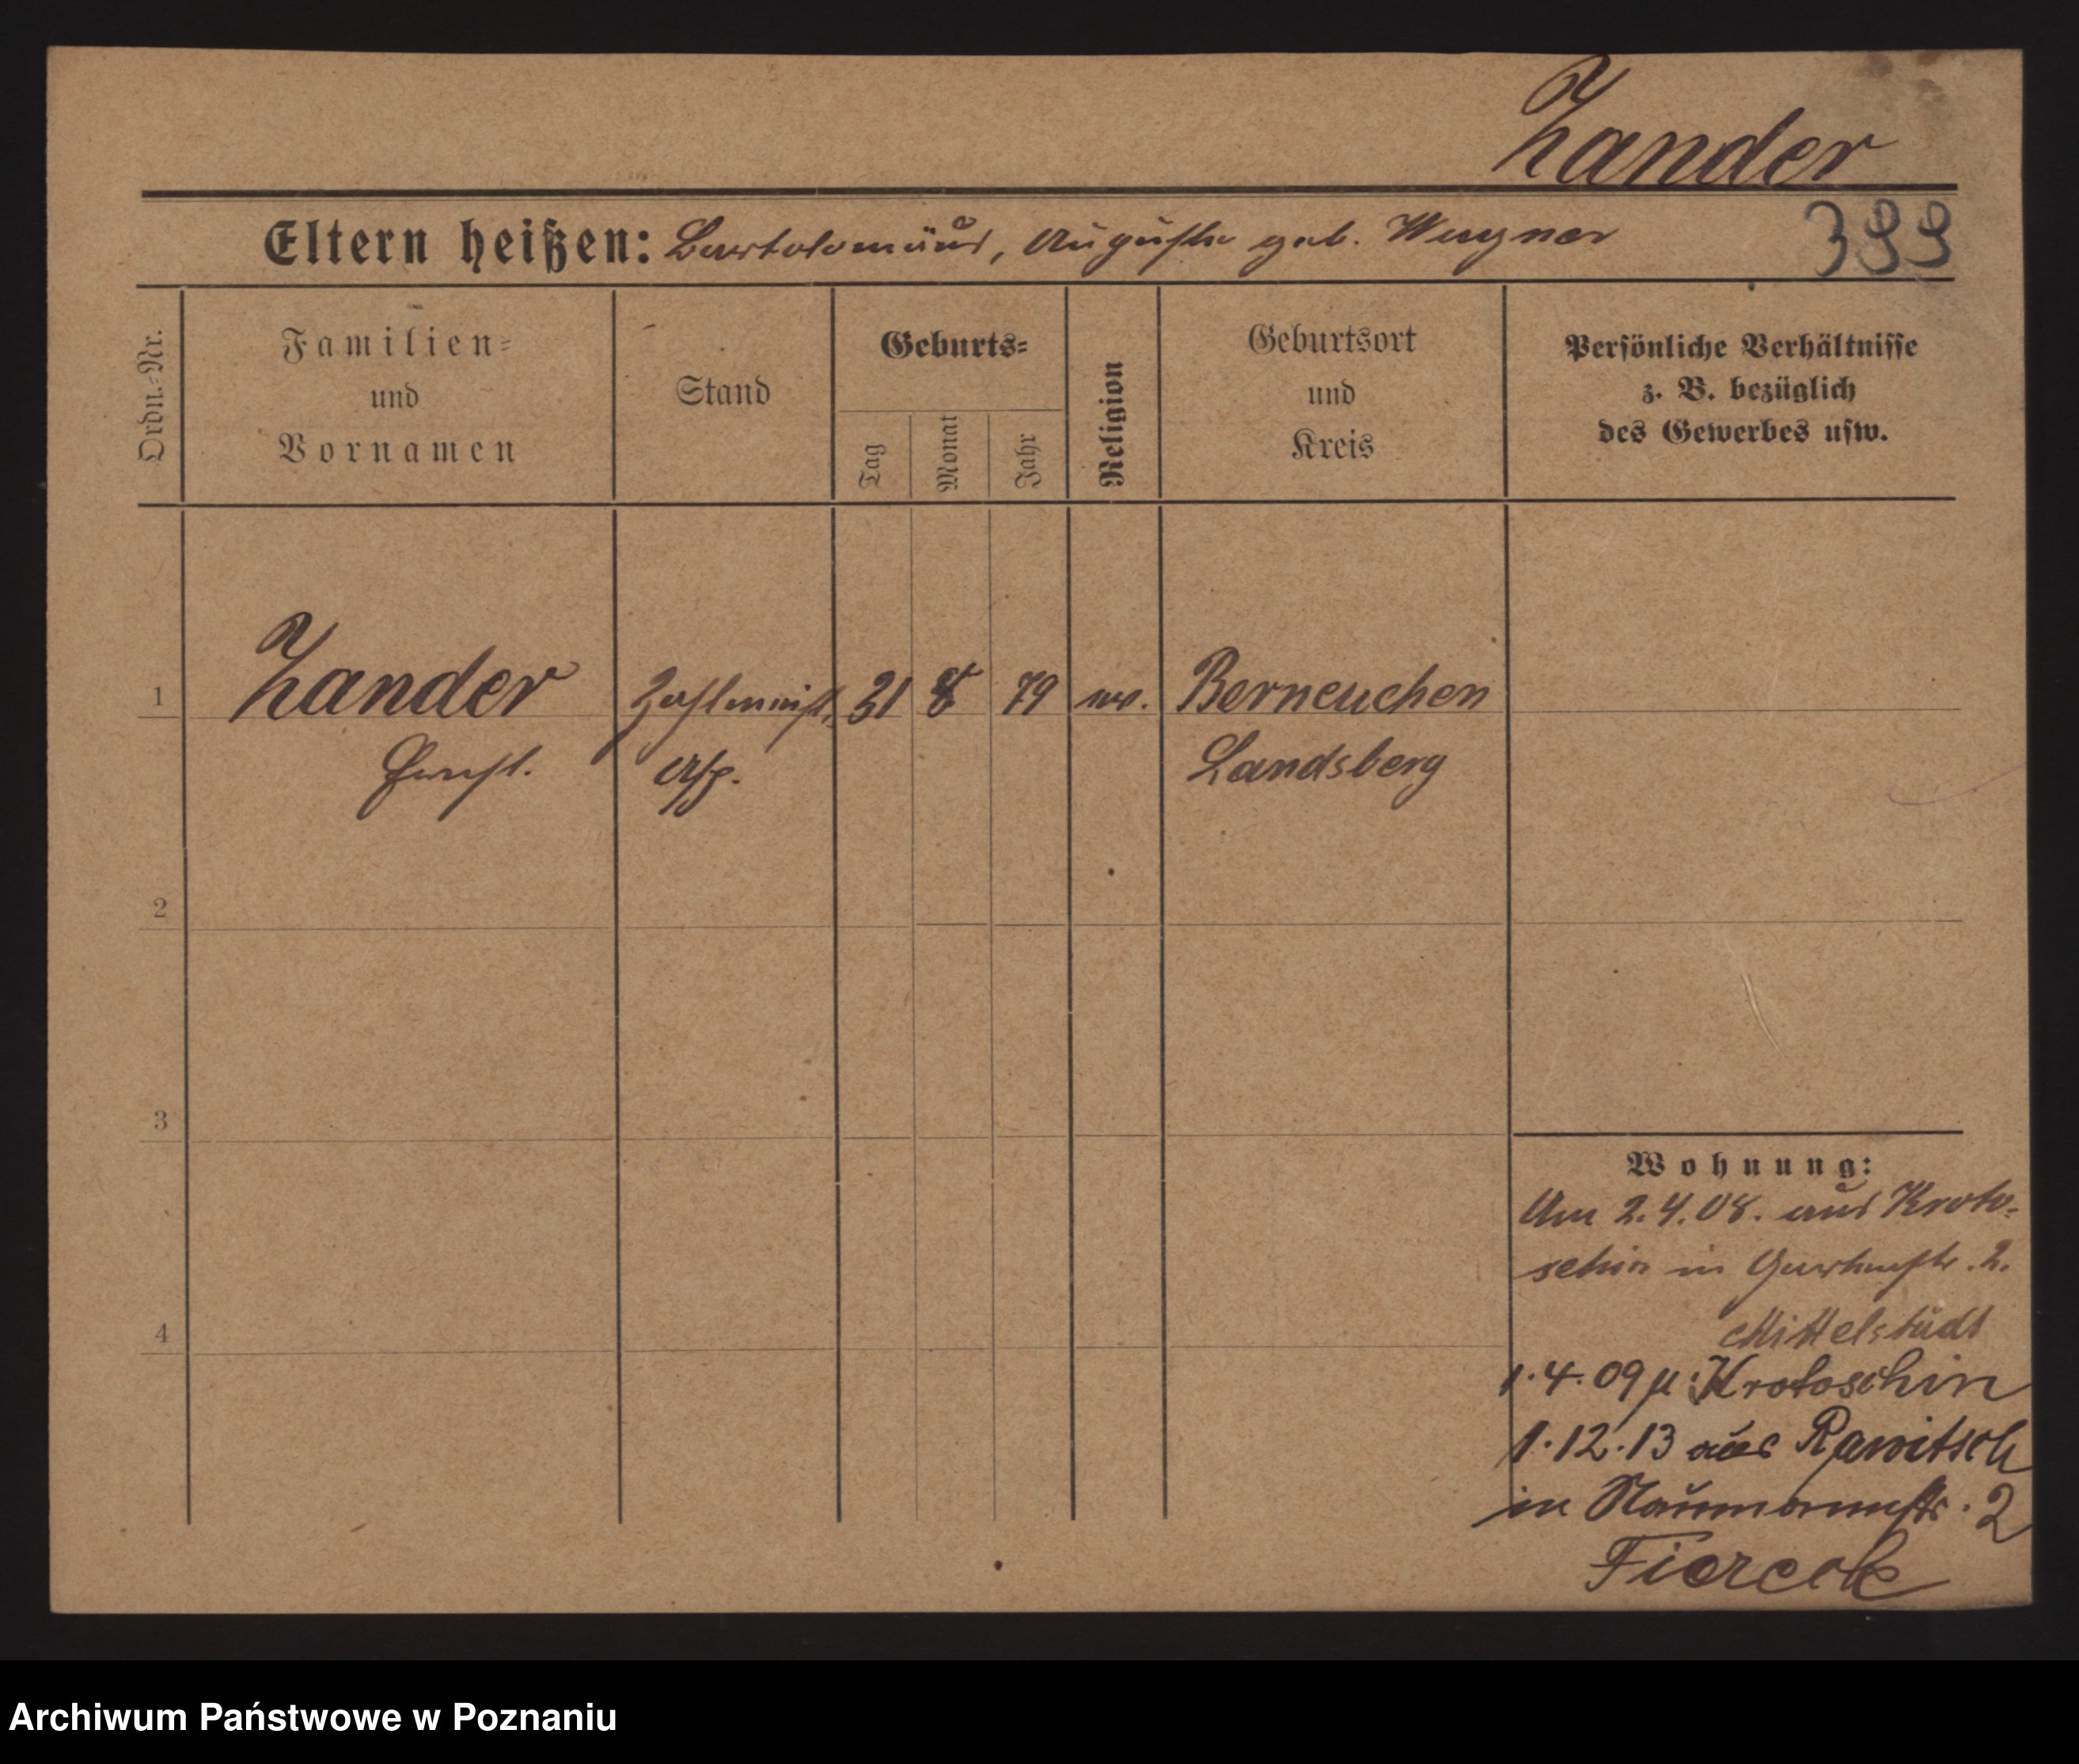 Zander
Eltern heißen: Bartolomäus, Auguste geb. Wagner
399
Ordn.-Nr.
Familien-
und
Vornamen
Stand
Geburts-
Tag
Monat
Jahr
Religion
Geburtsort
und
Kreis
Persönliche Verhältnisse
z. B. bezüglich
des Gewerbes usw.
1 Zander Zahlmeist. 31 8 79 ev. Berneuchen
Ernst. Asp. Landsberg
2
3
4
Wohnung:
Am 2.4.08. aus Kroto-
schin in Gartenstr. 2.
Mittelstädt
1.4.09 n Krotoschin
1.12.13 aus Rawitsch
in Naumannstr. 2
Archiwum Państwowe w Poznaniu